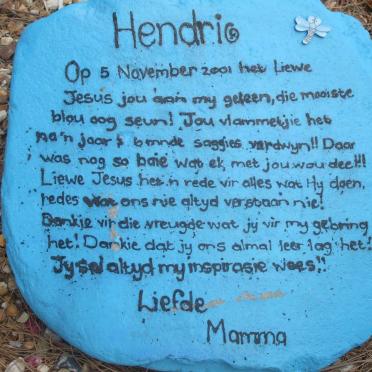 Hendri
Op 5 November 2001 het Liewe
Jesus jou aan my geleen, die mooiste
blou oog seun! Jou vlammetjie het
na 'n jaar saggies verdwyn!! Daar
was nog so baie wat ek met jou wou deel!!
Liewe Jesus het 'n rede vir alles wat Hy doen,
redes wat ons nie altyd verstaan nie!
Dankie vir die vreugde wat jy vir my gebring
het! Dankie dat jy ons almal leer lag het!
Jy sal altyd my inspirasie wees!!
Liefde
Mamma